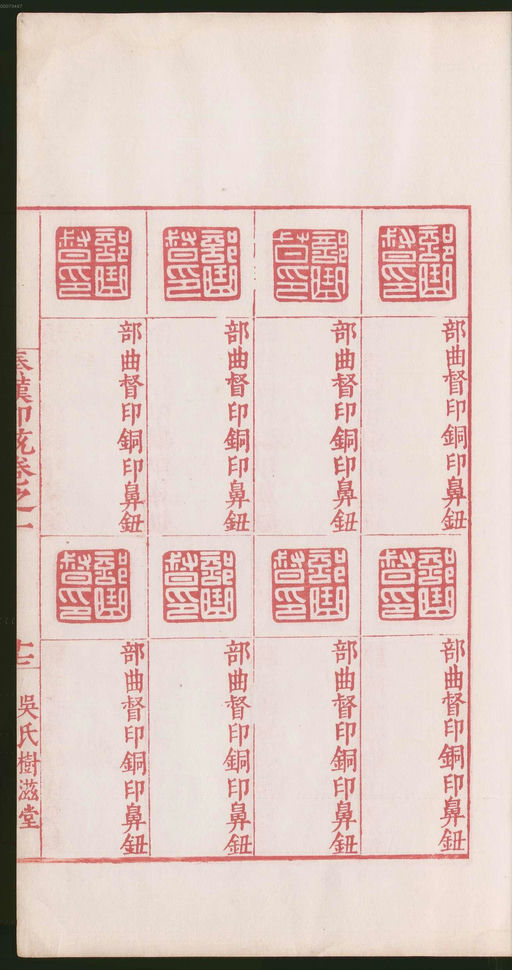 部曲督印
部曲督印
部曲督印
部曲督印
部曲督印銅印鼻鈕
部曲督印銅印鼻鈕
部曲督印銅印鼻鈕
部曲督印銅印鼻鈕
部曲督印
部曲督印
部曲督印
部曲督印
部曲督印銅印鼻鈕
部曲督印銅印鼻鈕
部曲督印銅印鼻鈕
部曲督印銅印鼻鈕
秦漢印統卷之一
吳氏樹滋堂
00073447